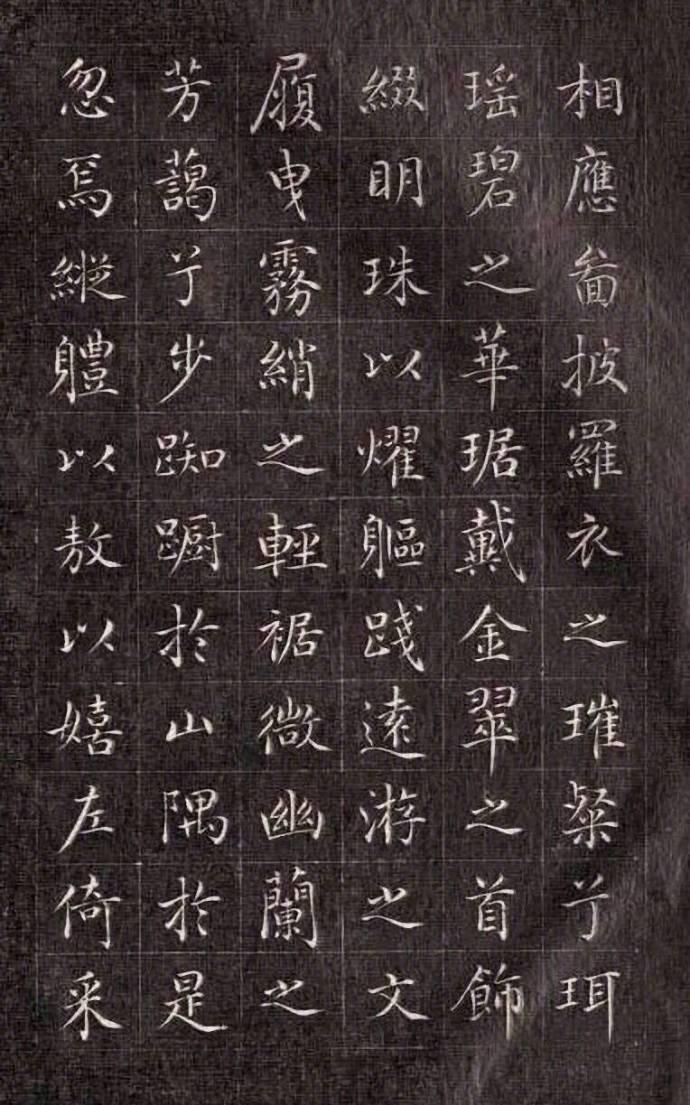 相應圖披羅衣之璀粲兮珥
瑶碧之華琚戴金翠之首飾
綴明珠以燿軀踐遠游之文
履曳霧綃之輕裾微幽蘭之
芳藹兮步踟蹰於山隅於是
忽焉縱體以敖以嬉左倚采